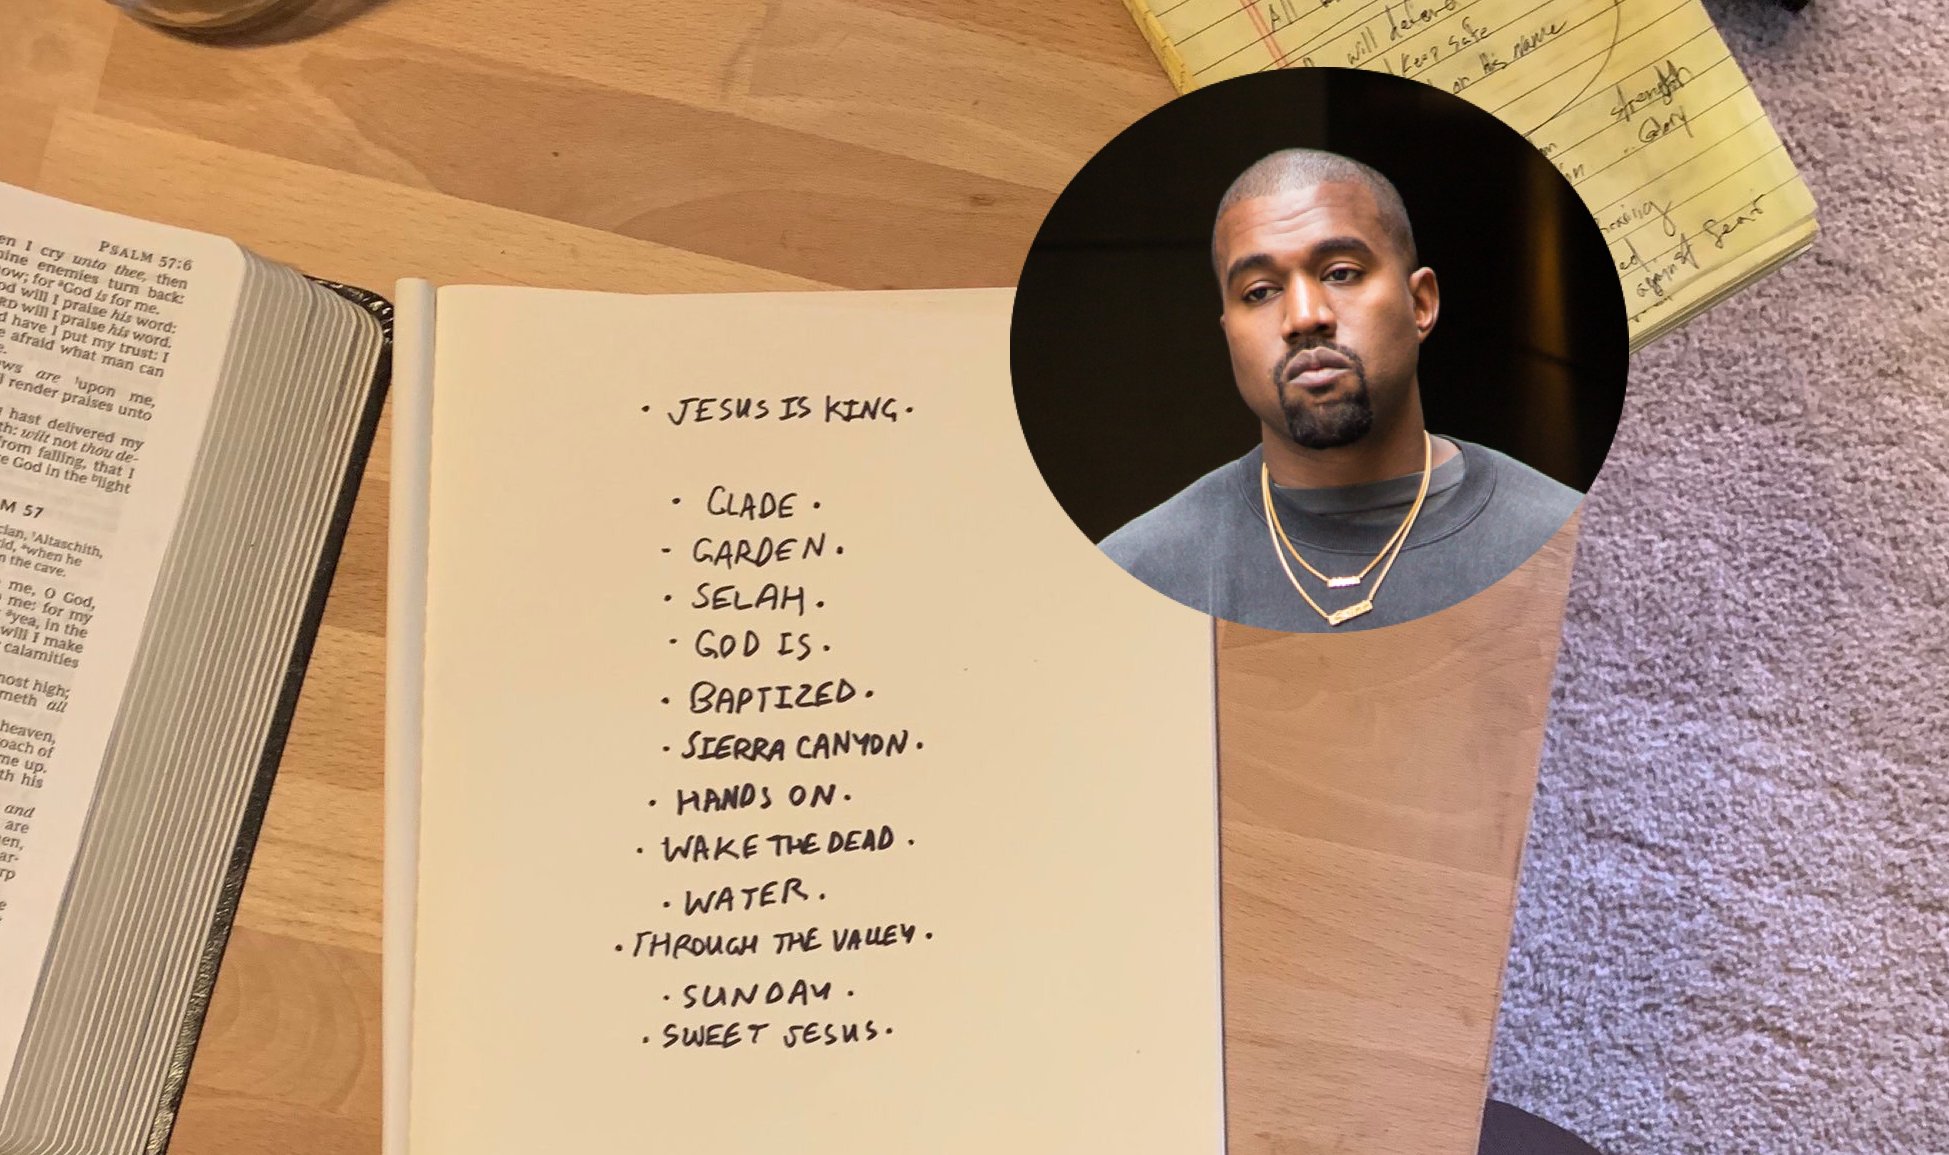 PSALM 57:6
en I cry unto thee, then
ine enemies turn back:
ow; for God is for me.
od will I praise his word:
RD will I praise his word.
d have I put my trust: I
e afraid what man can
e.
ws are upon me,
l render praises unto
hast delivered my
th: wilt not thou de-
rom falling, that I
e God in the light
M 57
cian, Altaschith,
id, when he
n the cave.
me, O God,
me: for my
yea, in the
will I make
calamities
most high;
meth all
heaven,
oach of
me up.
th his
and
are
en,
ar-
rp
e
· JESUS IS KING.
· CLADE .
- GARDEN .
· SELAH .
· GOD IS .
· BAPTIZED .
· SIERRA CANYON .
· HANDS ON .
· WAKE THE DEAD .
· WATER .
· THROUGH THE VALLEY .
· SUNDAY .
· SWEET JESUS .
All
will defend
Keep safe
on his name
strength
Glory
against fear